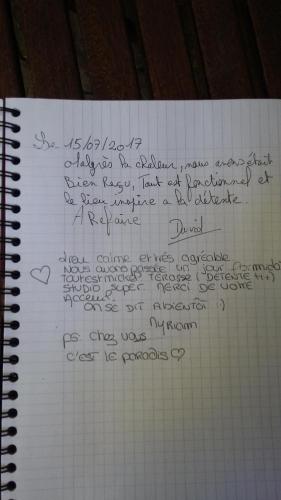 Le 15/07/2017
Malgrès la chaleur, nous avons était
Bien Reçu, Tout est fonctionnel et
le lieu inspire a la détente.
A Refaire
David
Lieu calme et très agréable
Nous avons passée un jour formida
Tout est nickel TERASSE (DETENTE +++)
STUDIO SUPER. MERCI DE VOTRE
ACCEUIL.
ON SE DIT ABIENTÔT :)
MYRIAM
ps: chez vous
c'est le paradis ♡